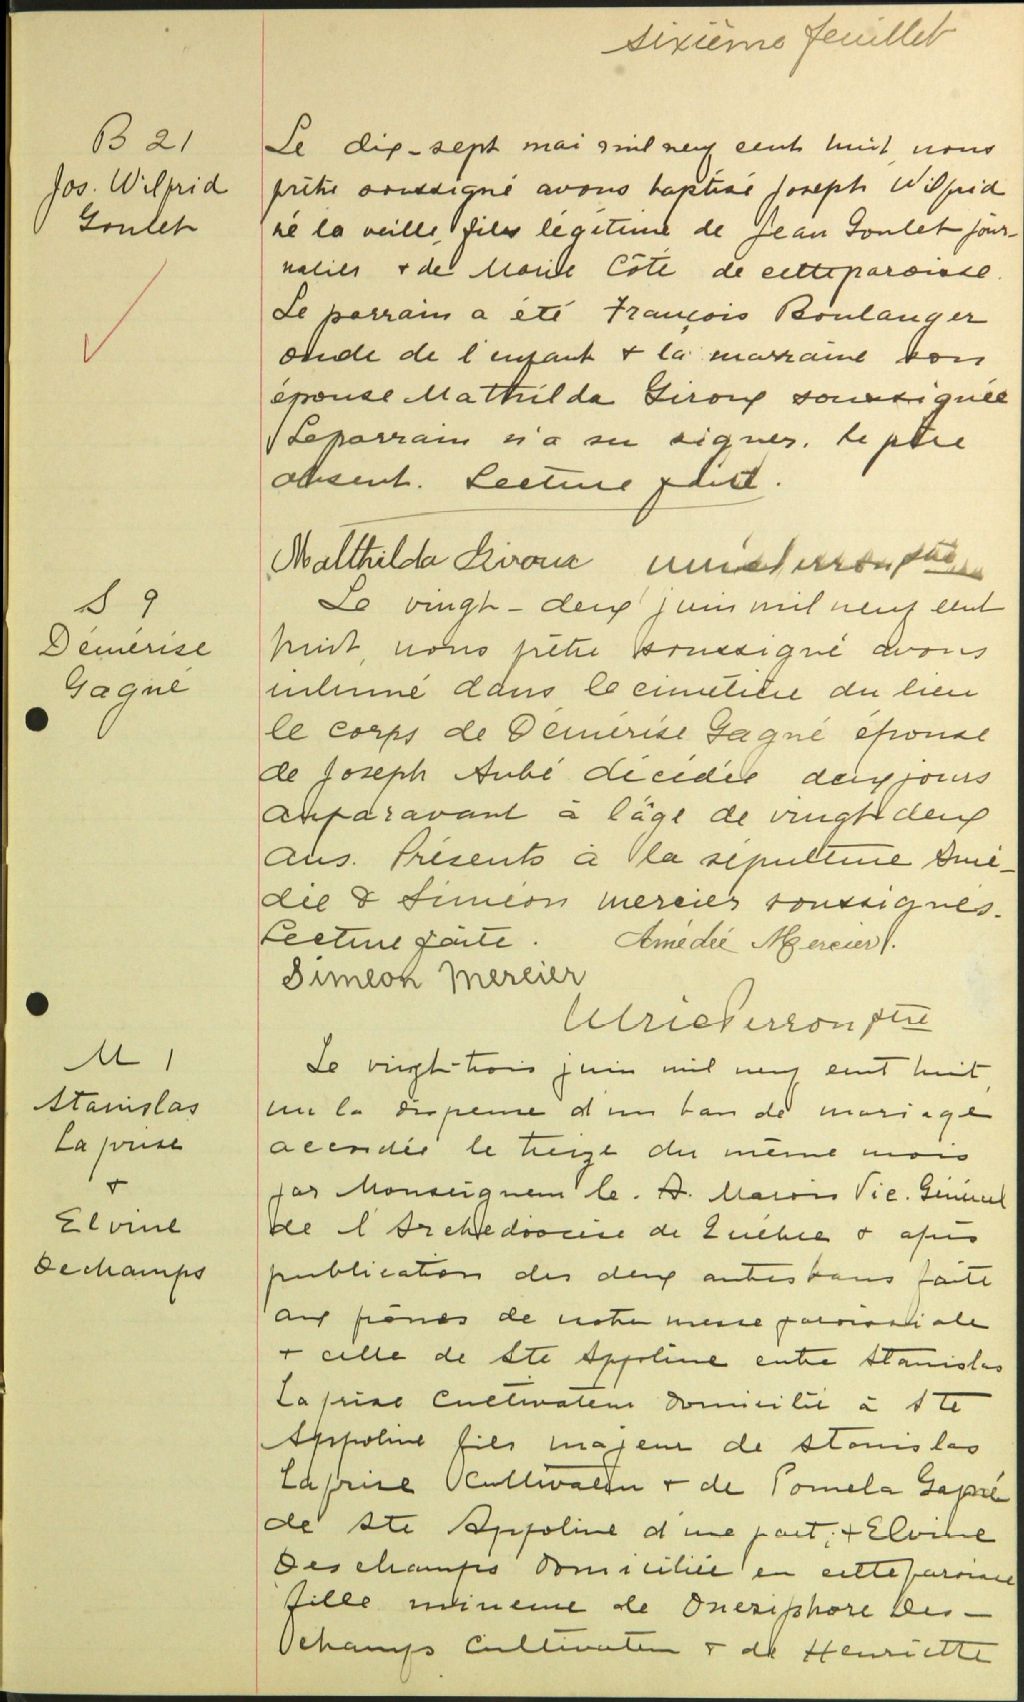 sixième feuillet
B 21
Jos. Wilfrid
Goulet
Le dix-sept mai mil neuf cent huit, nous
prêtre soussigné avons baptisé Joseph Wilfrid
né la veille, fils légitime de Jean Goulet jour-
nalier + de Marie Côté de cette paroisse.
Le parrain a été François Boulanger
oncle de l'enfant + la marraine son
épouse Mathilda Giroux soussignée
Le parrain n'a su signer. le père
absent. Lecture faite.
Malthilda Giroux ptre
S 9
Démérise
Gagné
Le vingt-deux juin mil neuf cent
huit, nous prêtre soussigné avons
inhumé dans le cimetière du lieu
le corps de Démérise Gagné épouse
de Joseph Aubé décédée deux jours
auparavant à l'âge de vingt deux
ans. Présents à la sépulture Amé-
dée & Siméon Mercier soussignés.
Lecture faite. Amédée Mercier.
Simeon Mercier
Ulric Perron ptre
M 1
Stanislas
Laprise
+
Elvine
Dechamps
Le vingt-trois juin mil neuf cent huit,
vu la dispense d'un ban de mariage
accordée le treize du même mois
par Monseigneur le. A. Marois Vic. Général
de l'Archediocèse de Québec + après
publication des deux autres bans faite
aux prônes de notre messe paroissiale
+ celle de Ste Appoline entre Stanislas
Laprise cultivateur domicilié à Ste
Appoline fils majeur de Stanislas
Laprise cultivateur + de Pomela Gagné
de Ste Appoline d'une part; + Elvine
Deschamps domiciliée en cette paroisse
fille mineure de Onesiphore Des-
champs cultivateur + de Henriette